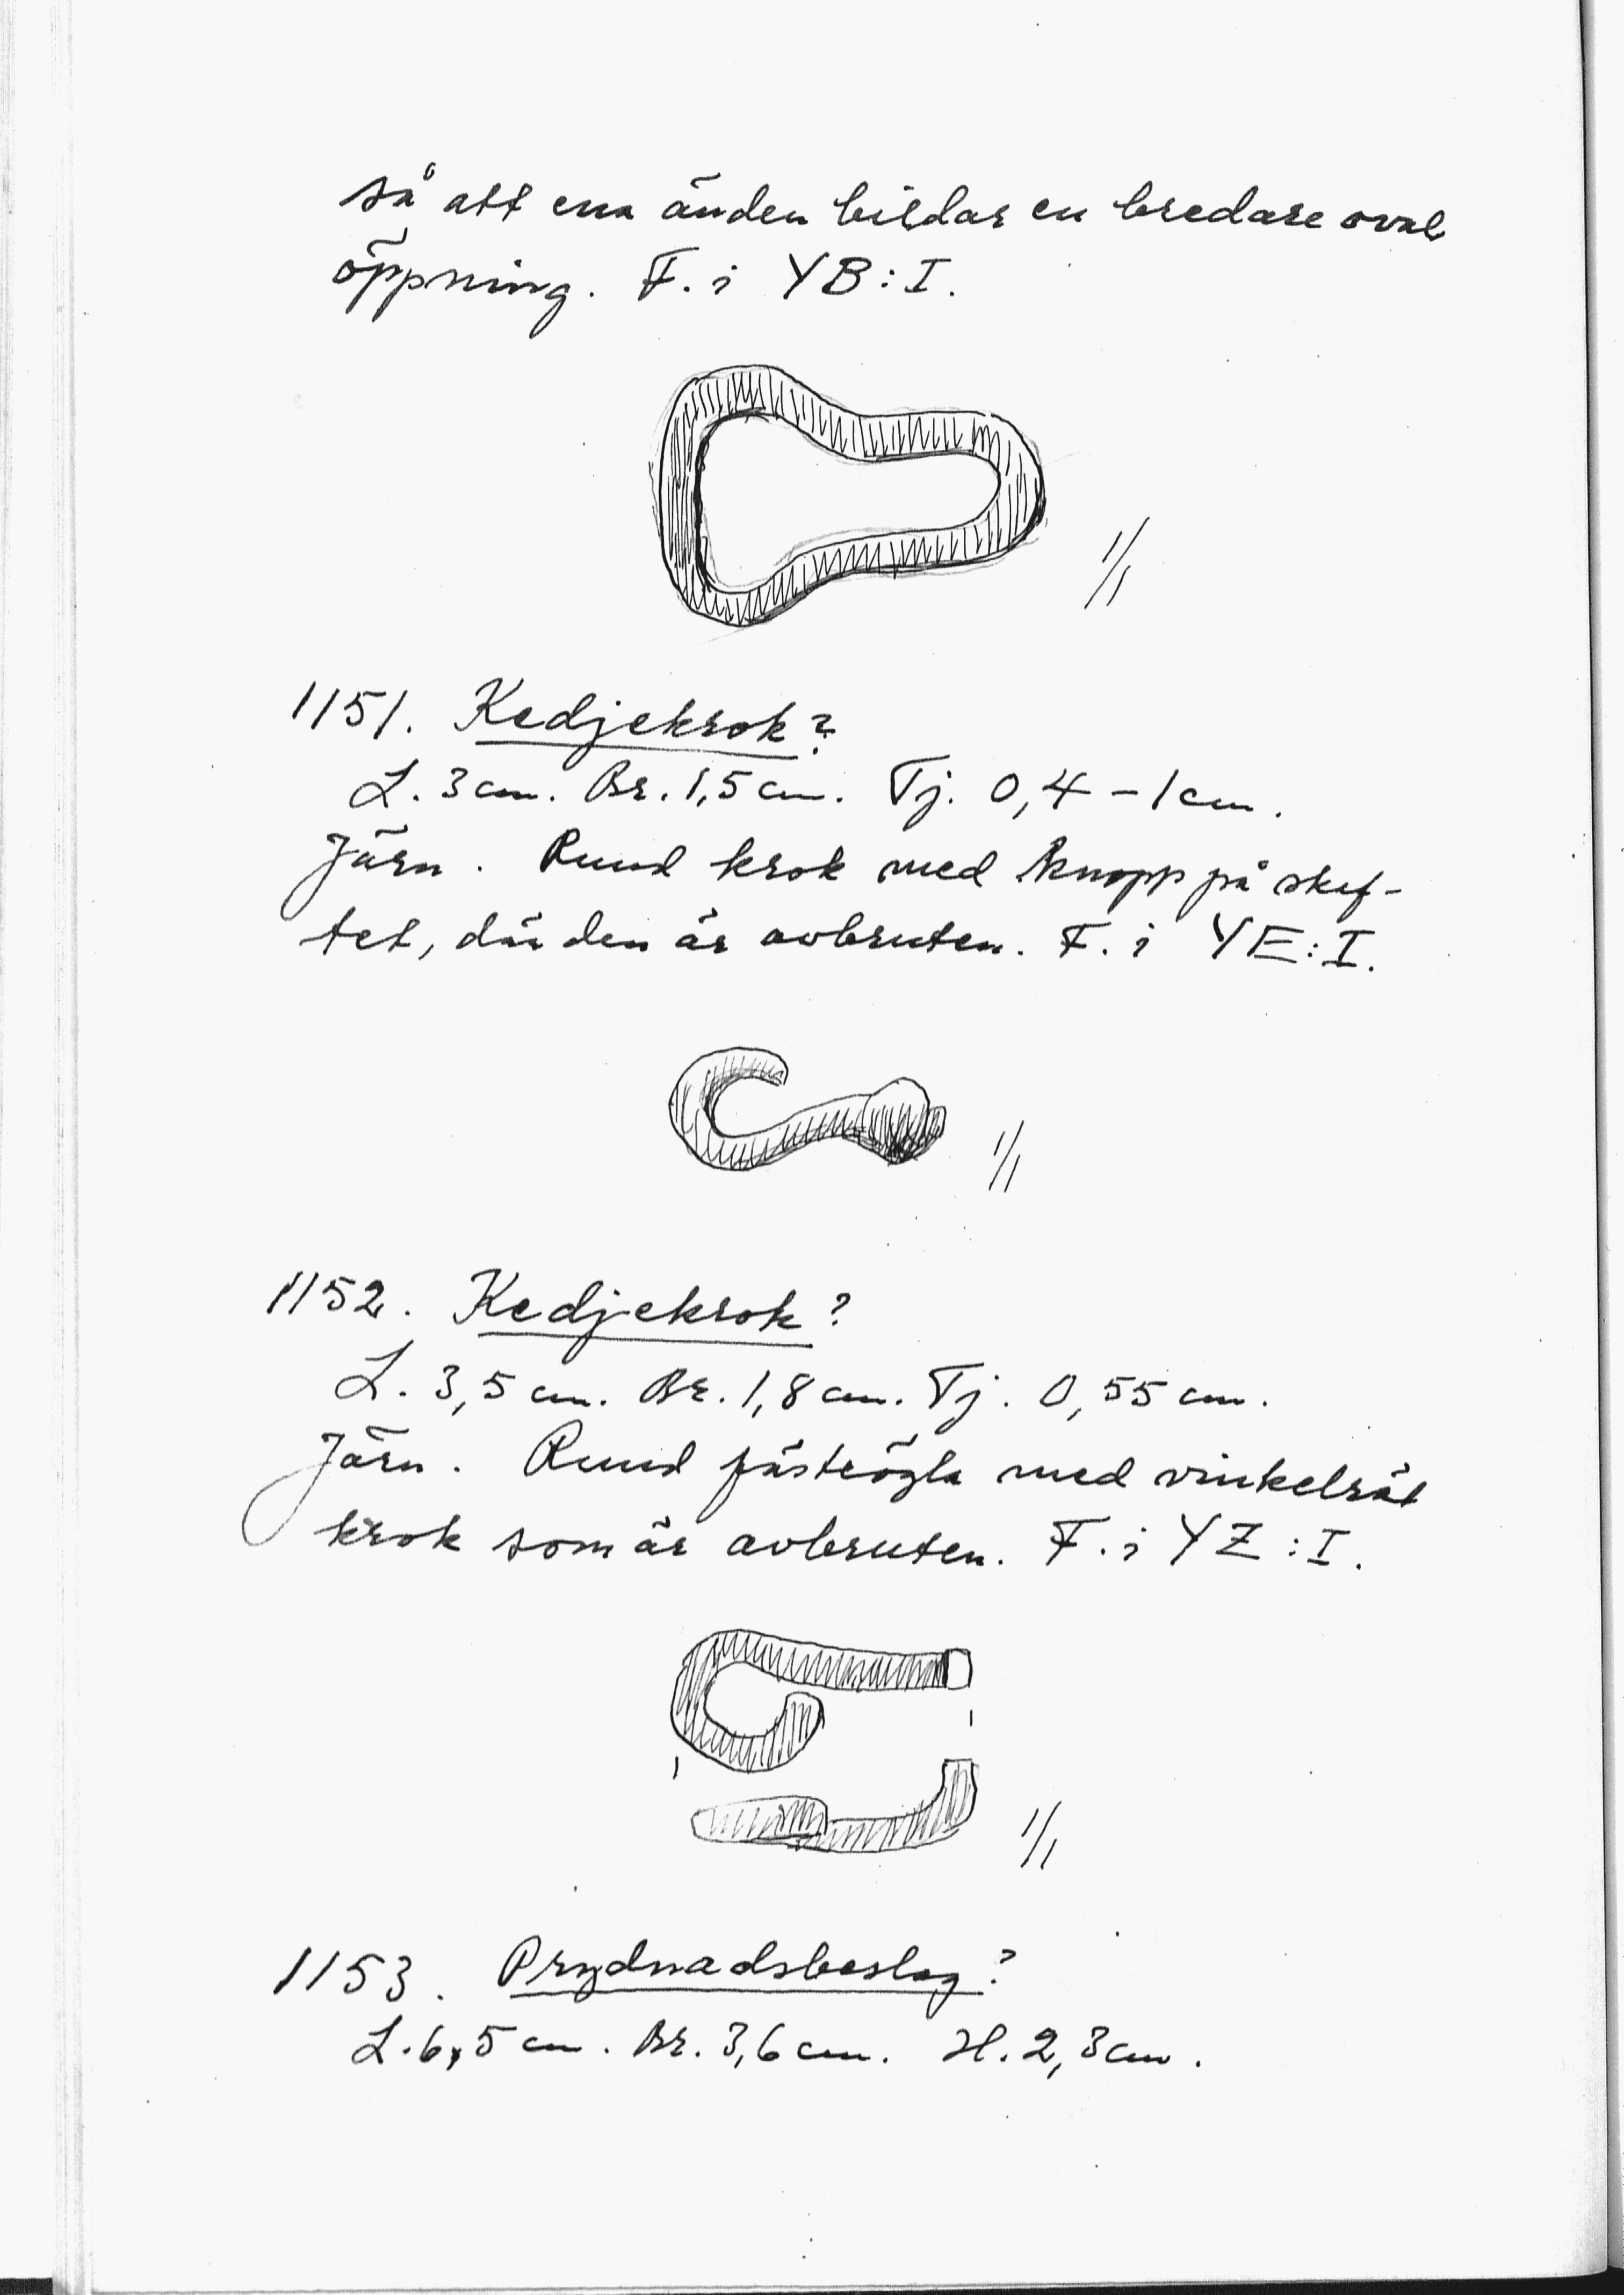 så att ena änden bildar en bredare oval
öppning. F. i YB:I.
1/1
1151. Kedjekrok?
L. 3 cm. Br. 1,5 cm. Tj. 0,4 - 1 cm.
Järn. Rund krok med knopp på skef-
tet, där den är avbruten. F. i YE:I.
1/1
1152. Kedjekrok?
L. 3,5 cm. Br. 1,8 cm. Tj. 0,55 cm.
Järn. Rund fästögla med vinkelrät
krok som är avbruten. F. i YZ:I.
1/1
1153. Prydnadsbeslag?
L. 6,5 cm. Br. 3,6 cm. H. 2,3 cm.